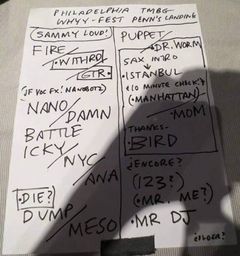 PHILADELPHIA TMBG
WHYY-FEST PENN'S LANDING
SAMMY LOUD!
FIRE
• WITHRD
GTR
JF VOX FX! NANOBOTZ
NANO / DAMN
BATTLE
ICKY / NYC
ANA
• DIE?
DUMP / MESO
PUPPET
DR. WORM
SAX INTRO
• ISTANBUL
(10 MINUTE CHECK!)
• MANHATTAN
MOM
THANKS-
BIRD
¿ENCORE?
(123?)
(• MR. ME?)
• MR DJ